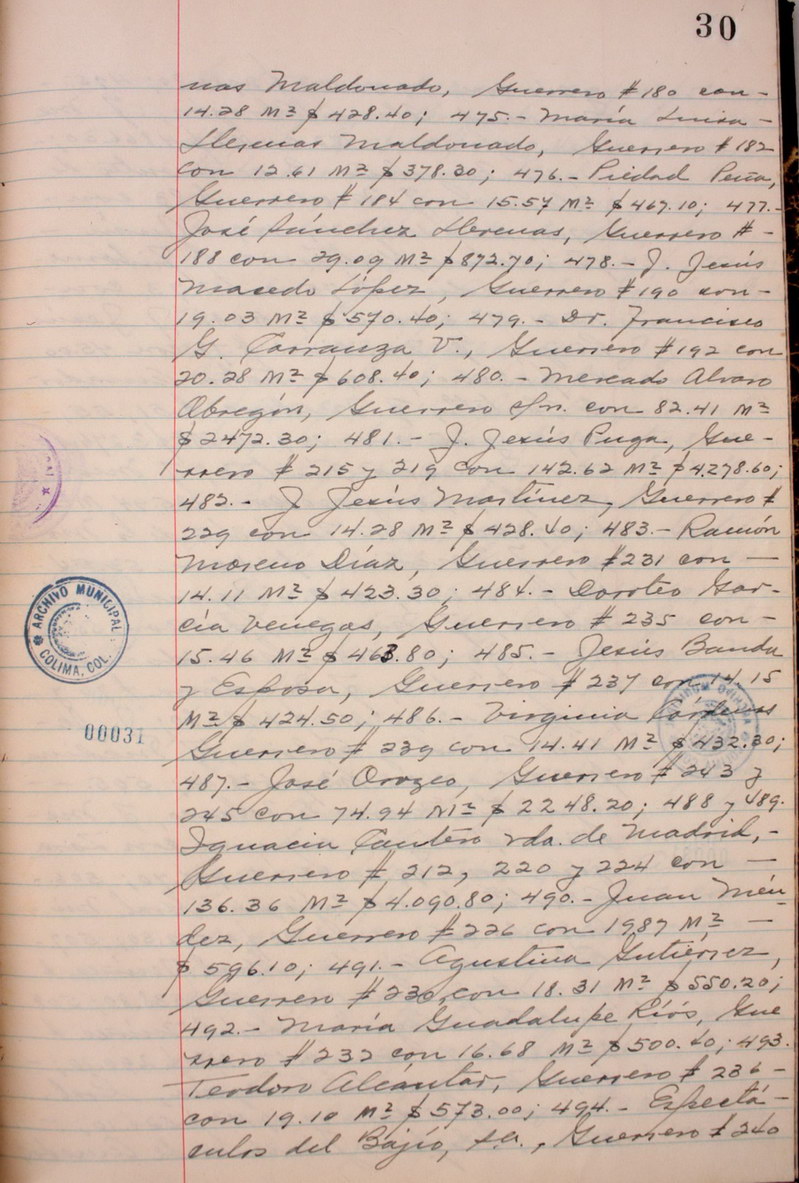 30
nas Maldonado, Guerrero # 180 con-
14.28 M² $ 428.40; 475.- María Luisa-
Llerenas Maldonado, Guerrero # 182
con 12.61 M² $ 378.30; 476.- Piedad Peña,
Guerrero # 184 con 15.57 M² $ 467.10; 477.-
José Sánchez Llerenas, Guerrero # -
188 con 29.09 M² $ 872.70; 478.- J. Jesús
Macedo López, Guerrero # 190 con-
19.03 M² $ 570.40; 479.- Dr. Francisco
G. Carranza V., Guerrero # 192 con
20.28 M² $ 608.40; 480.- Mercado Alvaro
Obregón, Guerrero s/n. con 82.41 M²
$ 2472.30; 481.- J. Jesús Puga, Gue-
rrero # 215 y 219 con 142.62 M² $ 4.278.60;
482.- J. Jesús Martínez, Guerrero #
229 con 14.28 M² $ 428.40; 483.- Ramón
Moreno Díaz, Guerrero # 231 con -
14.11 M² $ 423.30; 484.- Doroteo Gar-
cía Venegas, Guerrero # 235 con -
15.46 M² $ 463.80; 485.- Jesús Banda
y Esposa, Guerrero # 237 con 14.15
M² $ 424.50; 486.- Virginia Cárdenas
Guerrero # 239 con 14.41 M² $ 432.30;
487.- José Orozco, Guerrero # 243 y
245 con 74.94 M² $ 2248.20; 488 y 489.
Ignacia Cantero vda. de Madrid,-
Guerrero # 212, 220 y 224 con -
136.36 M² $ 4.090.80; 490.- Juan Mén-
dez, Guerrero # 226 con 19.87 M² -
$ 596.10; 491.- Agustina Gutiérrez,
Guerrero # 230, con 18.31 M² $ 550.20;
492.- María Guadalupe Ríos, Gue
rrero # 232 con 16.68 M² $ 500.40; 493.
Teodoro Alcántar, Guerrero # 236 -
con 19.10 M² $ 573.00; 494.- Espectá-
culos del Bajío, s.a., Guerrero # 240
ARCHIVO MUNICIPAL
COLIMA, COL.
00031